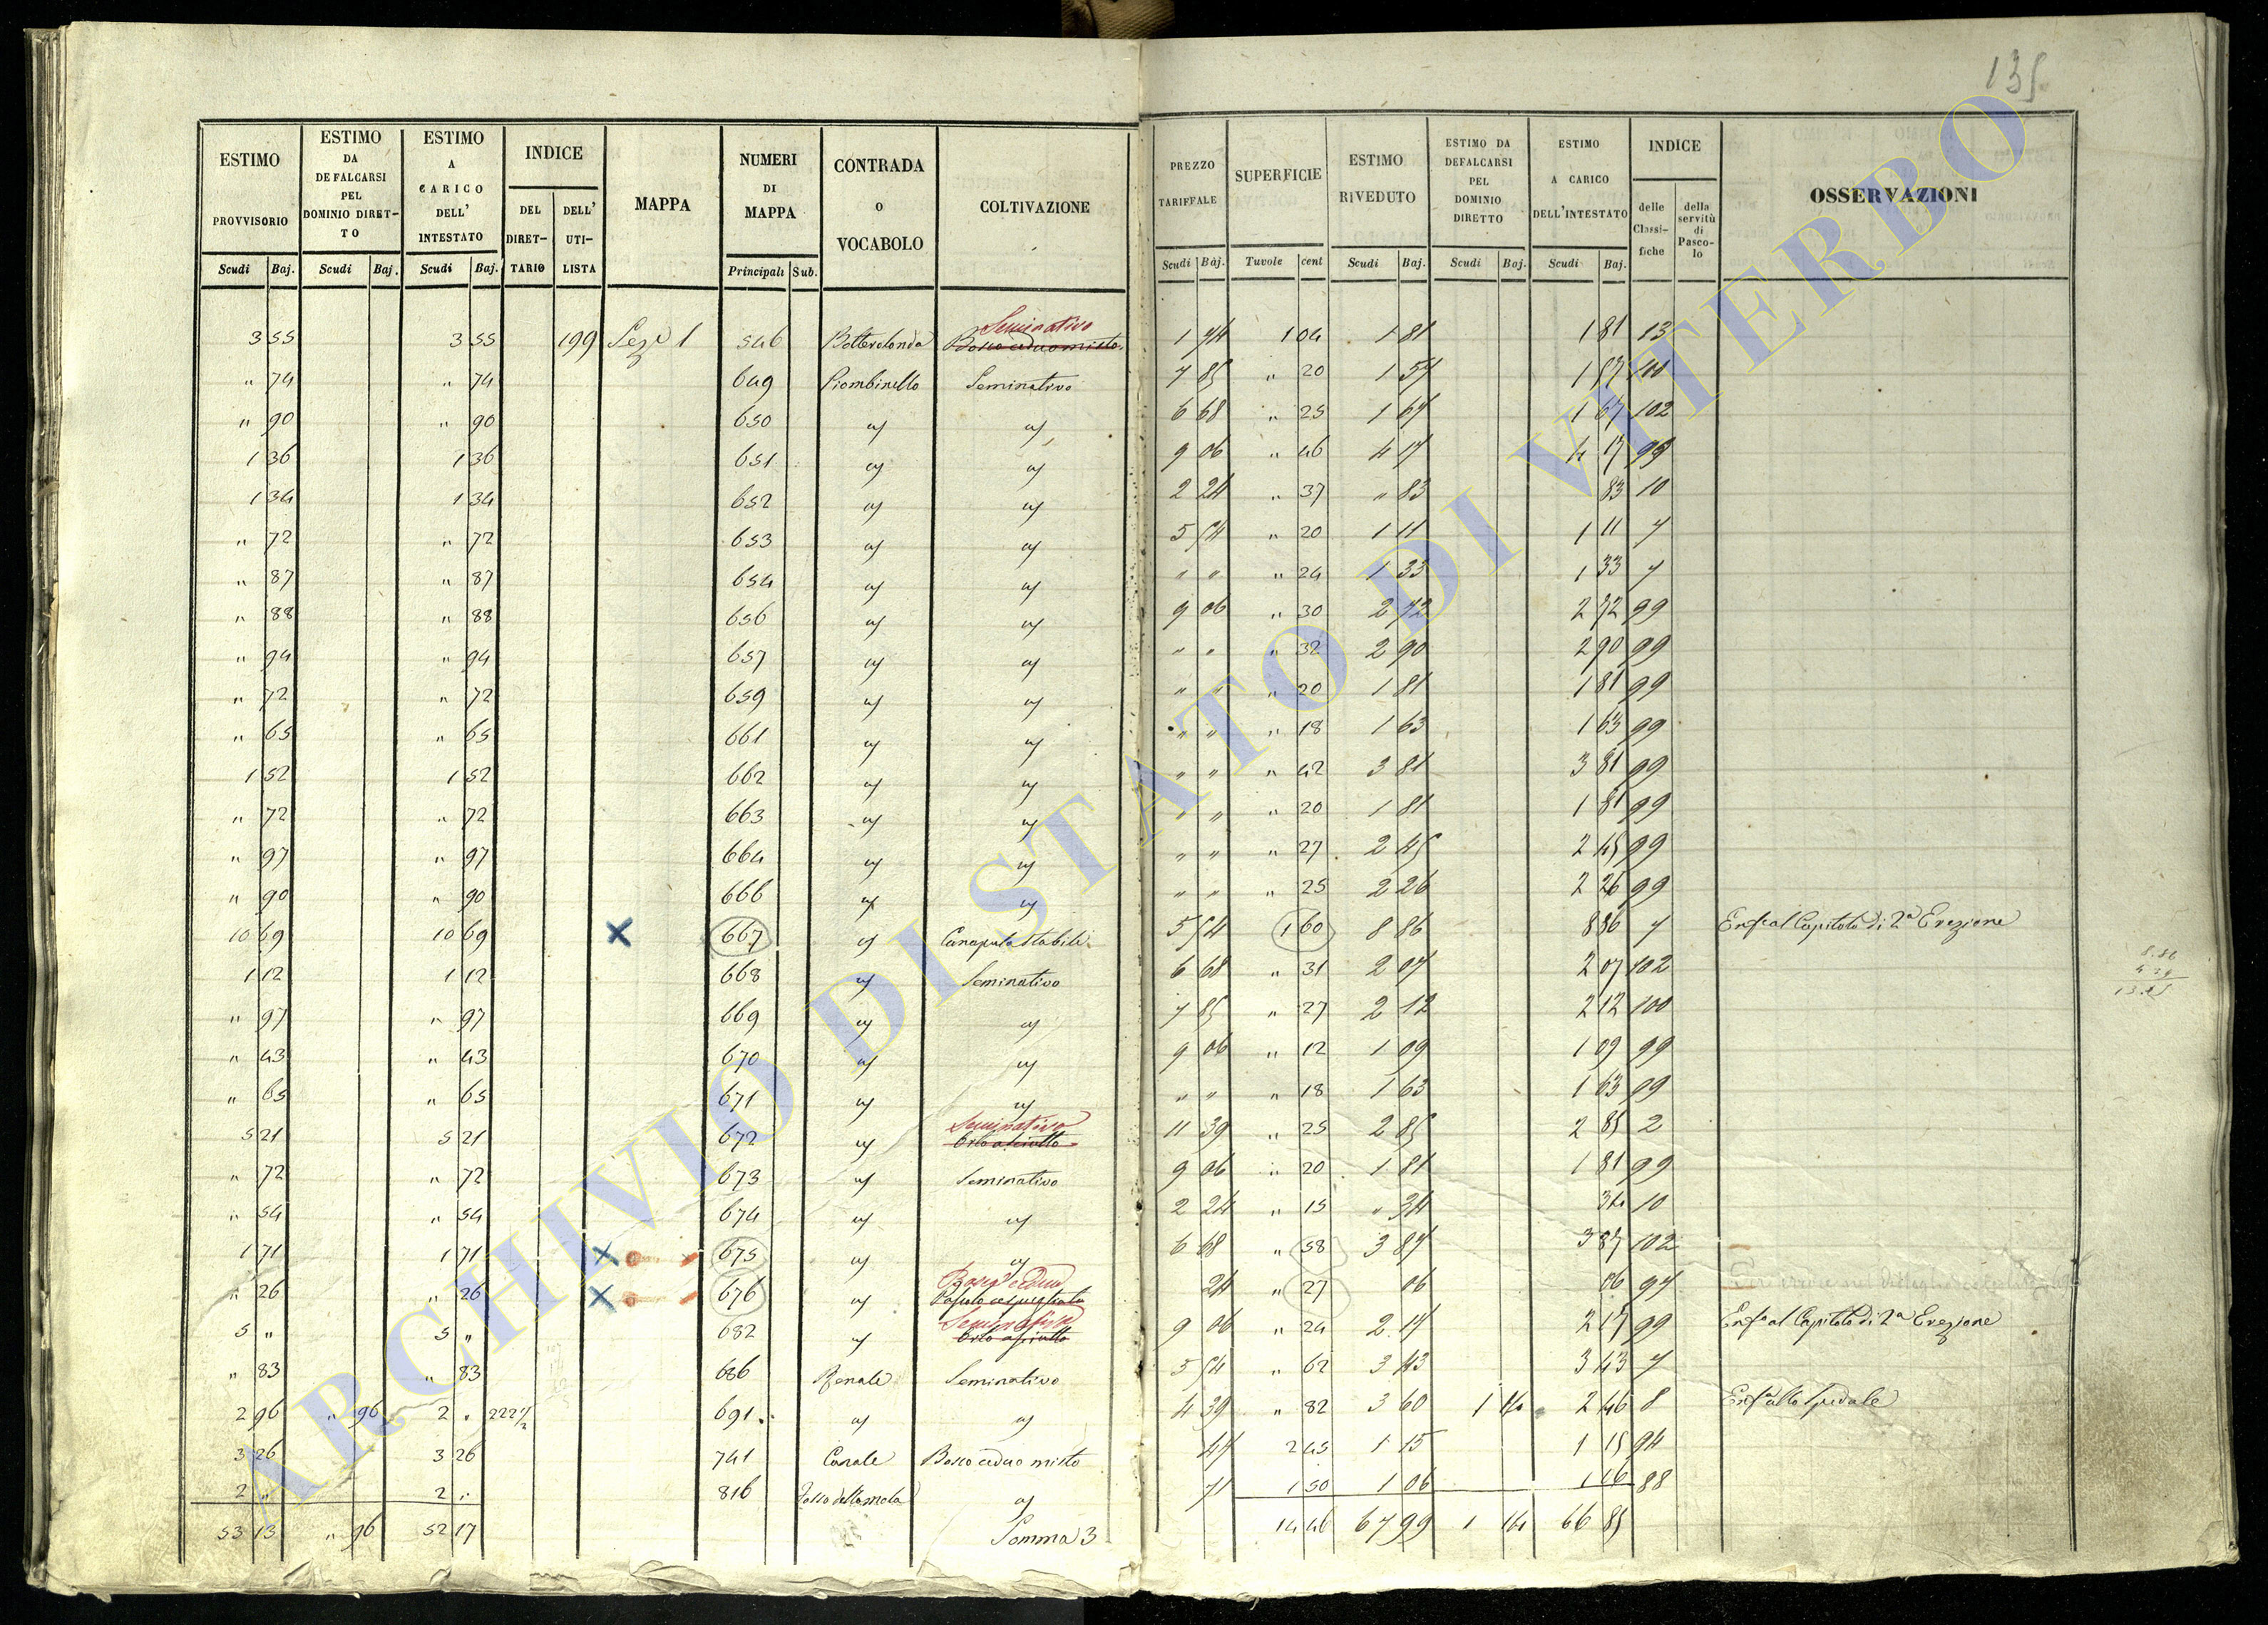 135
ESTIMO PROVVISORIO
ESTIMO DA DEFALCARSI PEL DOMINIO DIRET- TO
ESTIMO A CARICO DELL' INTESTATO
INDICE
DEL DIRET- TARIO
DELL' UTI- LISTA
MAPPA
NUMERI DI MAPPA
CONTRADA O VOCABOLO
COLTIVAZIONE
PREZZO TARIFFALE
SUPERFICIE
ESTIMO RIVEDUTO
ESTIMO DA DEFALCARSI PEL DOMINIO DIRETTO
ESTIMO A CARICO DELL'INTESTATO
INDICE
delle Classi- fiche
della servitù di Pasco- lo
OSSERVAZIONI
Scudi Baj. Scudi Baj. Scudi Baj. Principali Sub. Scudi Baj. Tavole cent Scudi Baj. Scudi Baj. Scudi Baj.
Seminativo
3 55 3 55 199 Sez. 1 546 Bosco ceduo misto 1 74 1 04 1 81 1 81 13
" 74 " 74 649 Piombinello Seminativo 7 85 " 20 1 57 1 57 100
" 90 " 90 650 " " 6 68 " 25 1 67 1 67 102
1 36 1 36 651 " " 9 06 " 46 4 17 4 17 99
1 34 1 34 652 " " 2 24 " 37 " 83 83 10
" 72 " 72 653 " " 5 54 " 20 1 11 1 11 7
" 87 " 87 654 " " " " " 24 1 33 1 33 7
" 88 " 88 656 " " 9 06 " 30 2 72 2 72 99
" 94 " 94 657 " " " " " 32 2 90 2 90 99
" 72 " 72 659 " " " " " 20 1 81 1 81 99
" 65 " 65 661 " " " " " 18 1 63 1 63 99
1 52 1 52 662 " " " " " 42 3 81 3 81 99
" 72 " 72 663 " " " " " 20 1 81 1 81 99
" 97 " 97 664 " " " " " 27 2 45 2 45 99
" 90 " 90 666 " " " " " 25 2 26 2 26 99
10 69 10 69 667 " Canapulo stabile 5 54 1 60 8 86 8 86 7 Enf.al Capitolo di 2a Erezione
1 12 1 12 668 " Seminativo 6 68 " 31 2 07 2 07 102
" 97 " 97 669 " " 7 85 " 27 2 12 2 12 100
" 43 " 43 670 " " 9 06 " 12 1 09 1 09 99
" 65 " 65 671 " " " " " 18 1 63 1 63 99
Seminativo
5 21 5 21 672 " Orto asciutto 11 39 " 25 2 85 2 85 2
" 72 " 72 673 " Seminativo 9 06 " 20 1 81 1 81 99
" 54 " 54 674 " " 2 24 " 15 " 34 34 10
1 71 1 71 675 " " 6 68 " 58 3 87 3 87 102
Bosco ceduo
" 26 " 26 676 " Pascolo cespugliato 24 " 27 06 06 97
Seminativo
5 " 5 " 682 " Orto asciutto 9 06 " 24 2 17 2 17 99 Enf.al Capitolo di 2a Erezione
" 83 " 83 686 Renale Seminativo 5 54 " 62 3 43 3 43 7
2 96 " 96 2 " 222 1/2 691 " " 4 39 " 82 3 60 1 14 2 46 8 Enf. allo Spedale
3 26 3 26 741 Canale Bosco ceduo misto 47 2 45 1 15 1 15 94
2 " 2 " 816 Fosso della mola " 71 1 50 1 06 1 06 88
53 13 " 96 52 17 Somma 3 14 46 67 99 1 14 66 85
ARCHIVIO DI STATO DI VITERBO